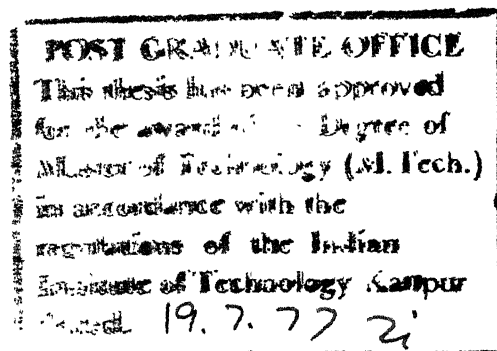 POST GRADUATE OFFICE
This thesis has been approved
for the award of the Degree of
Master of Technology (M. Tech.)
in accordance with the
regulations of the Indian
Institute of Technology Kanpur
Dated. 19. 7. 77